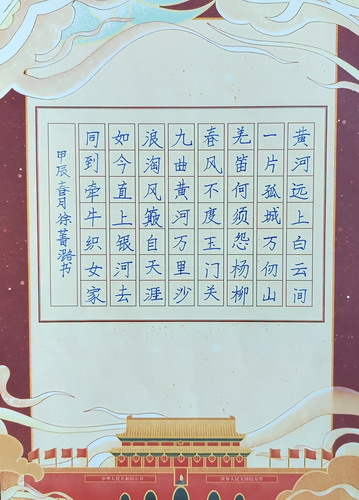 黄河远上白云间
一片孤城万仞山
羌笛何须怨杨柳
春风不度玉门关
九曲黄河万里沙
浪淘风簸自天涯
如今直上银河去
同到牵牛织女家
甲辰春月徐菁潞书
中华人民共和国万岁
世界人民大团结万岁